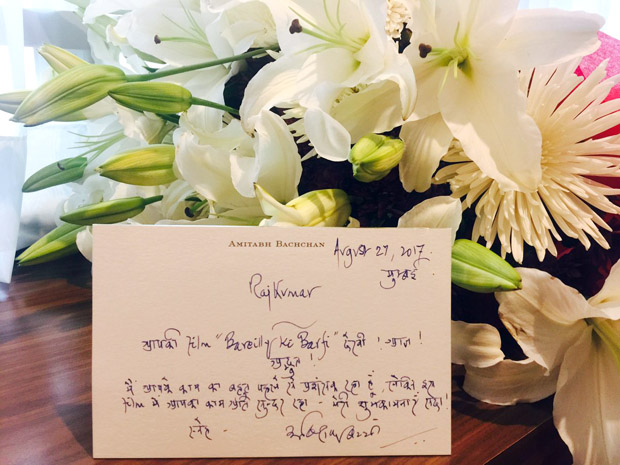 AMITABH BACHCHAN
August 27, 2017
मुंबई.
RajKumar
आपकी film "Bareilly Ki Barfi" देखी ! आज !
मैं आपके काम का बहुत पहले से प्रशंसक रहा हूँ, लेकिन इस
film में आपका काम अति सुन्दर रहा - मेरी शुभकामनाएं सदा !
स्नेह -